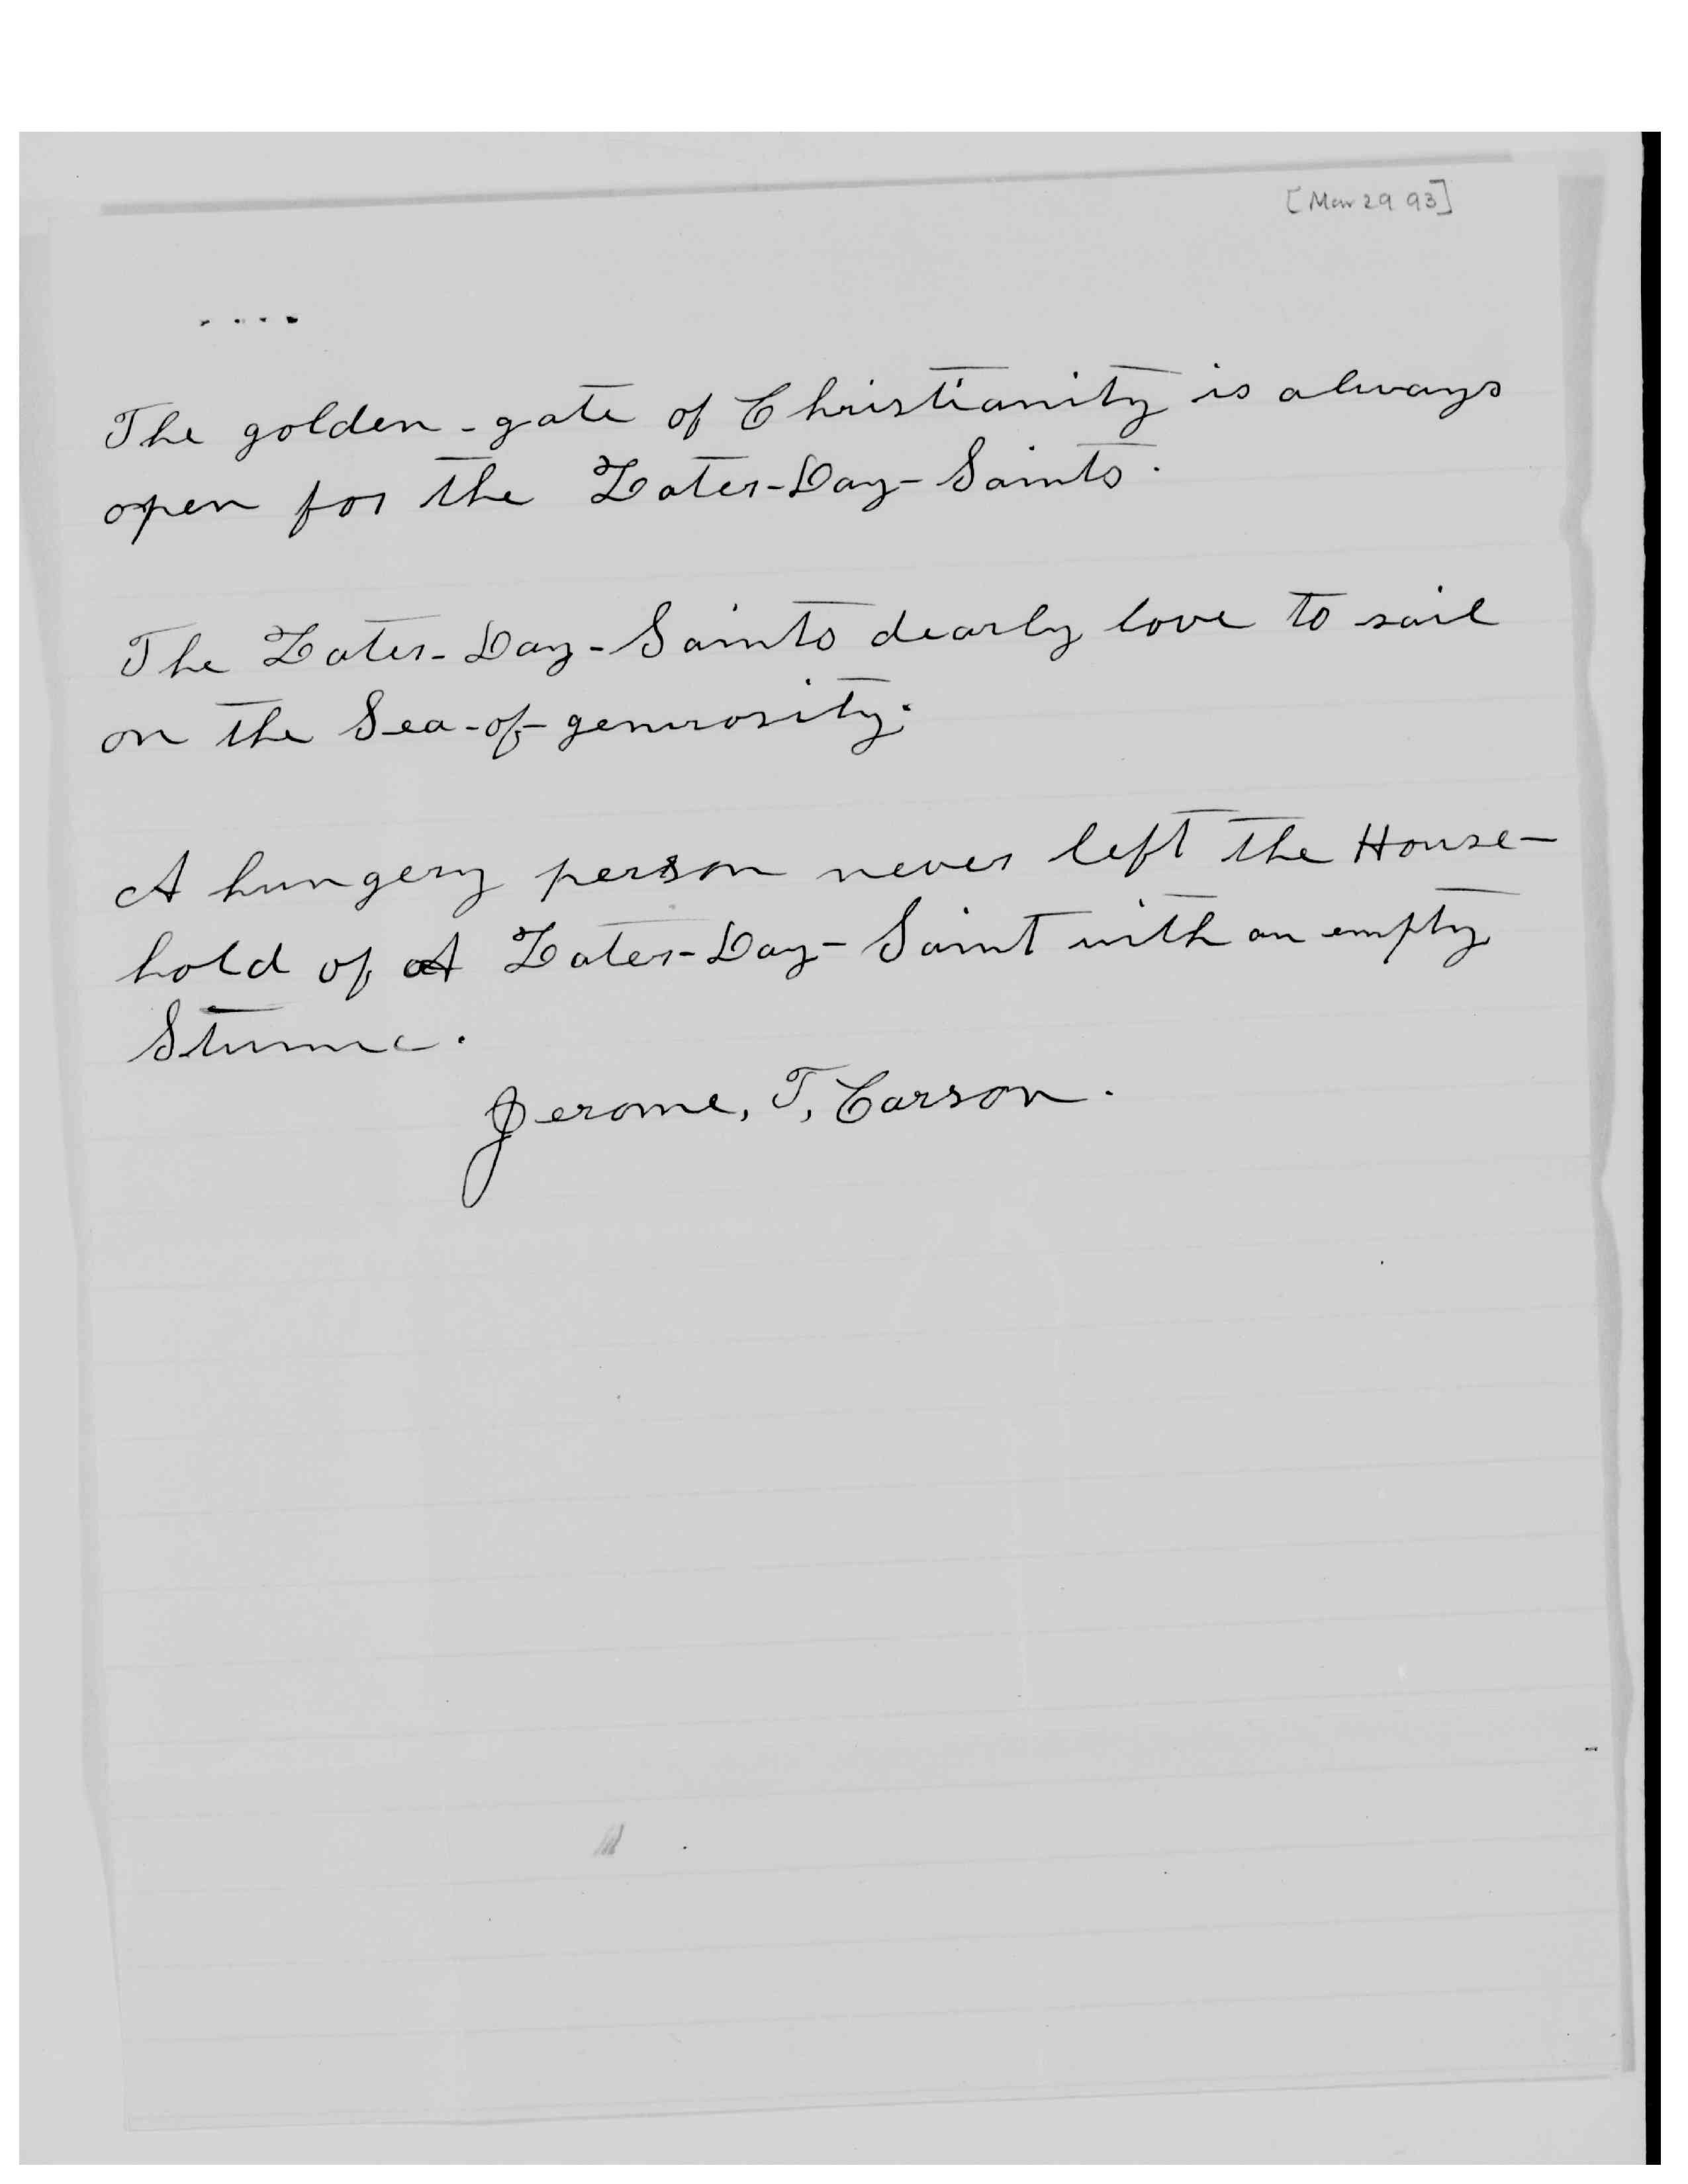 [Mar 29 93]
The golden-gate of Christianity is always
open for the Later-Day-Saints.
The Later-Day-Saints dearly love to sail
on the Sea-of-generosity.
A hungery person never left the House-
hold of A Later-Day-Saint with an empty
Jerome, T, Carson.